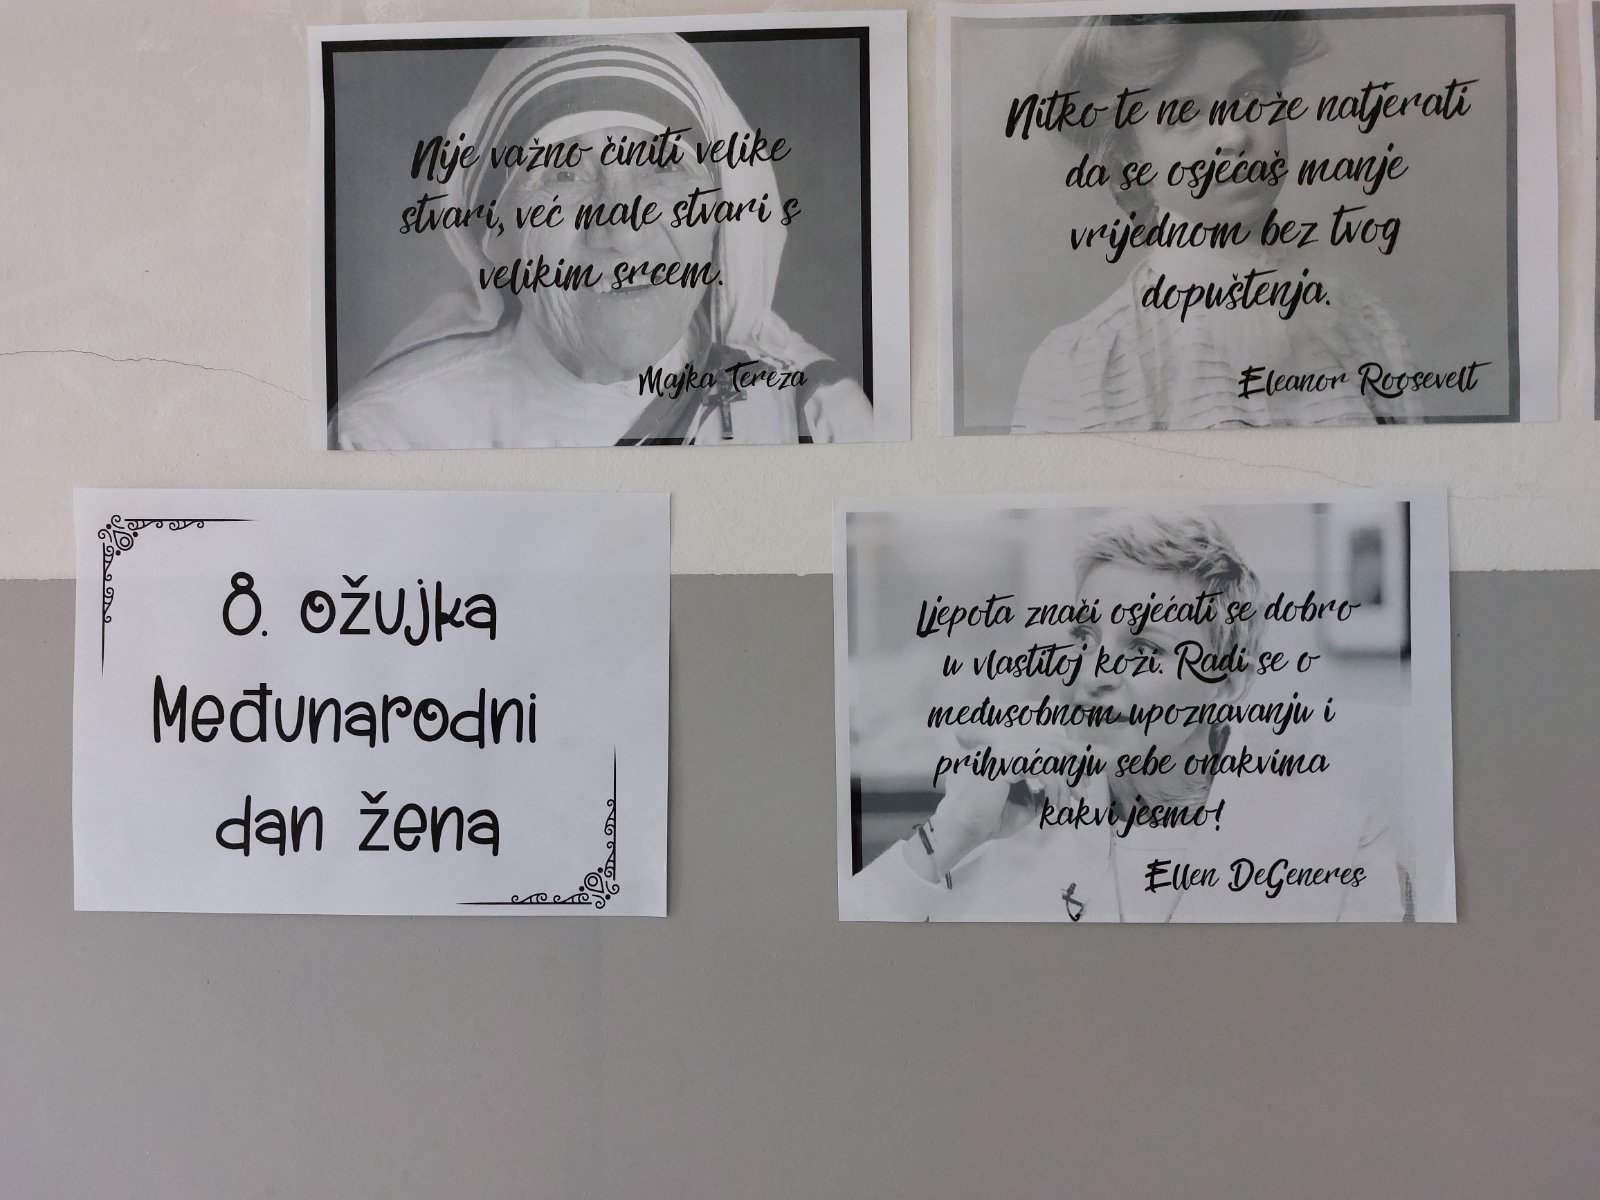 Nije važno činiti velike
stvari, već male stvari s
velikim srcem.
Majka Tereza
Nitko te ne može natjerati
da se osjećaš manje
vrijednom bez tvog
dopuštenja.
Eleanor Roosevelt
8. ožujka
Međunarodni
dan žena
Ljepota znači osjećati se dobro
u vlastitoj koži. Radi se o
međusobnom upoznavanju i
prihvaćanju sebe onakvima
kakvi jesmo!
Ellen DeGeneres